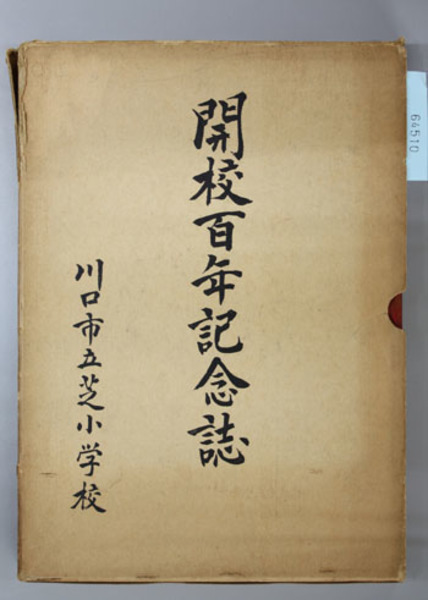 開校百年記念誌
川口市立芝小学校
64510